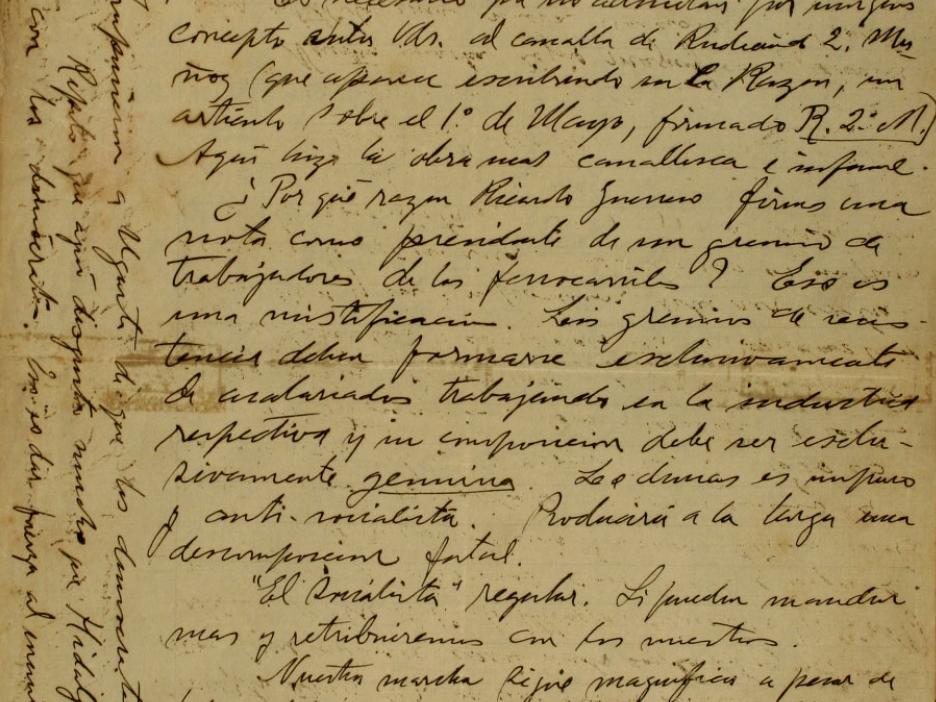 concepto antes Vds. al canalla de Rudecind 2. Mu-
ñoz (que aparece escribiendo en La Razon, un
artículo sobre el 1.º de Mayo, firmado R. 2.º M.)
Aquí hizo la obra mas canallesca e infame.
¿Por qué razon Ricardo Guerrero firma una
nota como presidente de un gremio de
trabajadores de los ferrocarriles? Eso es
una mistificacion. Los gremios de resis-
tencia deben formarse esclusivamente
de asalariados trabajando en la industria
respectiva y su composicion debe ser esclu-
sivamente genuina. Lo demas es impuro
y anti-socialista. Producirá a la larga una
descomposicion fatal.
"El Socialista" regular. Si pueden mandar
mas y retribuiremos con los nuestros.
Nuestra marcha sigue magnifica a pesar de
a Ugarte de que los democrat
Repito que aquí disgusta mucho que Hidalg
con los demócratas. Eso es dar fuerza al enemi